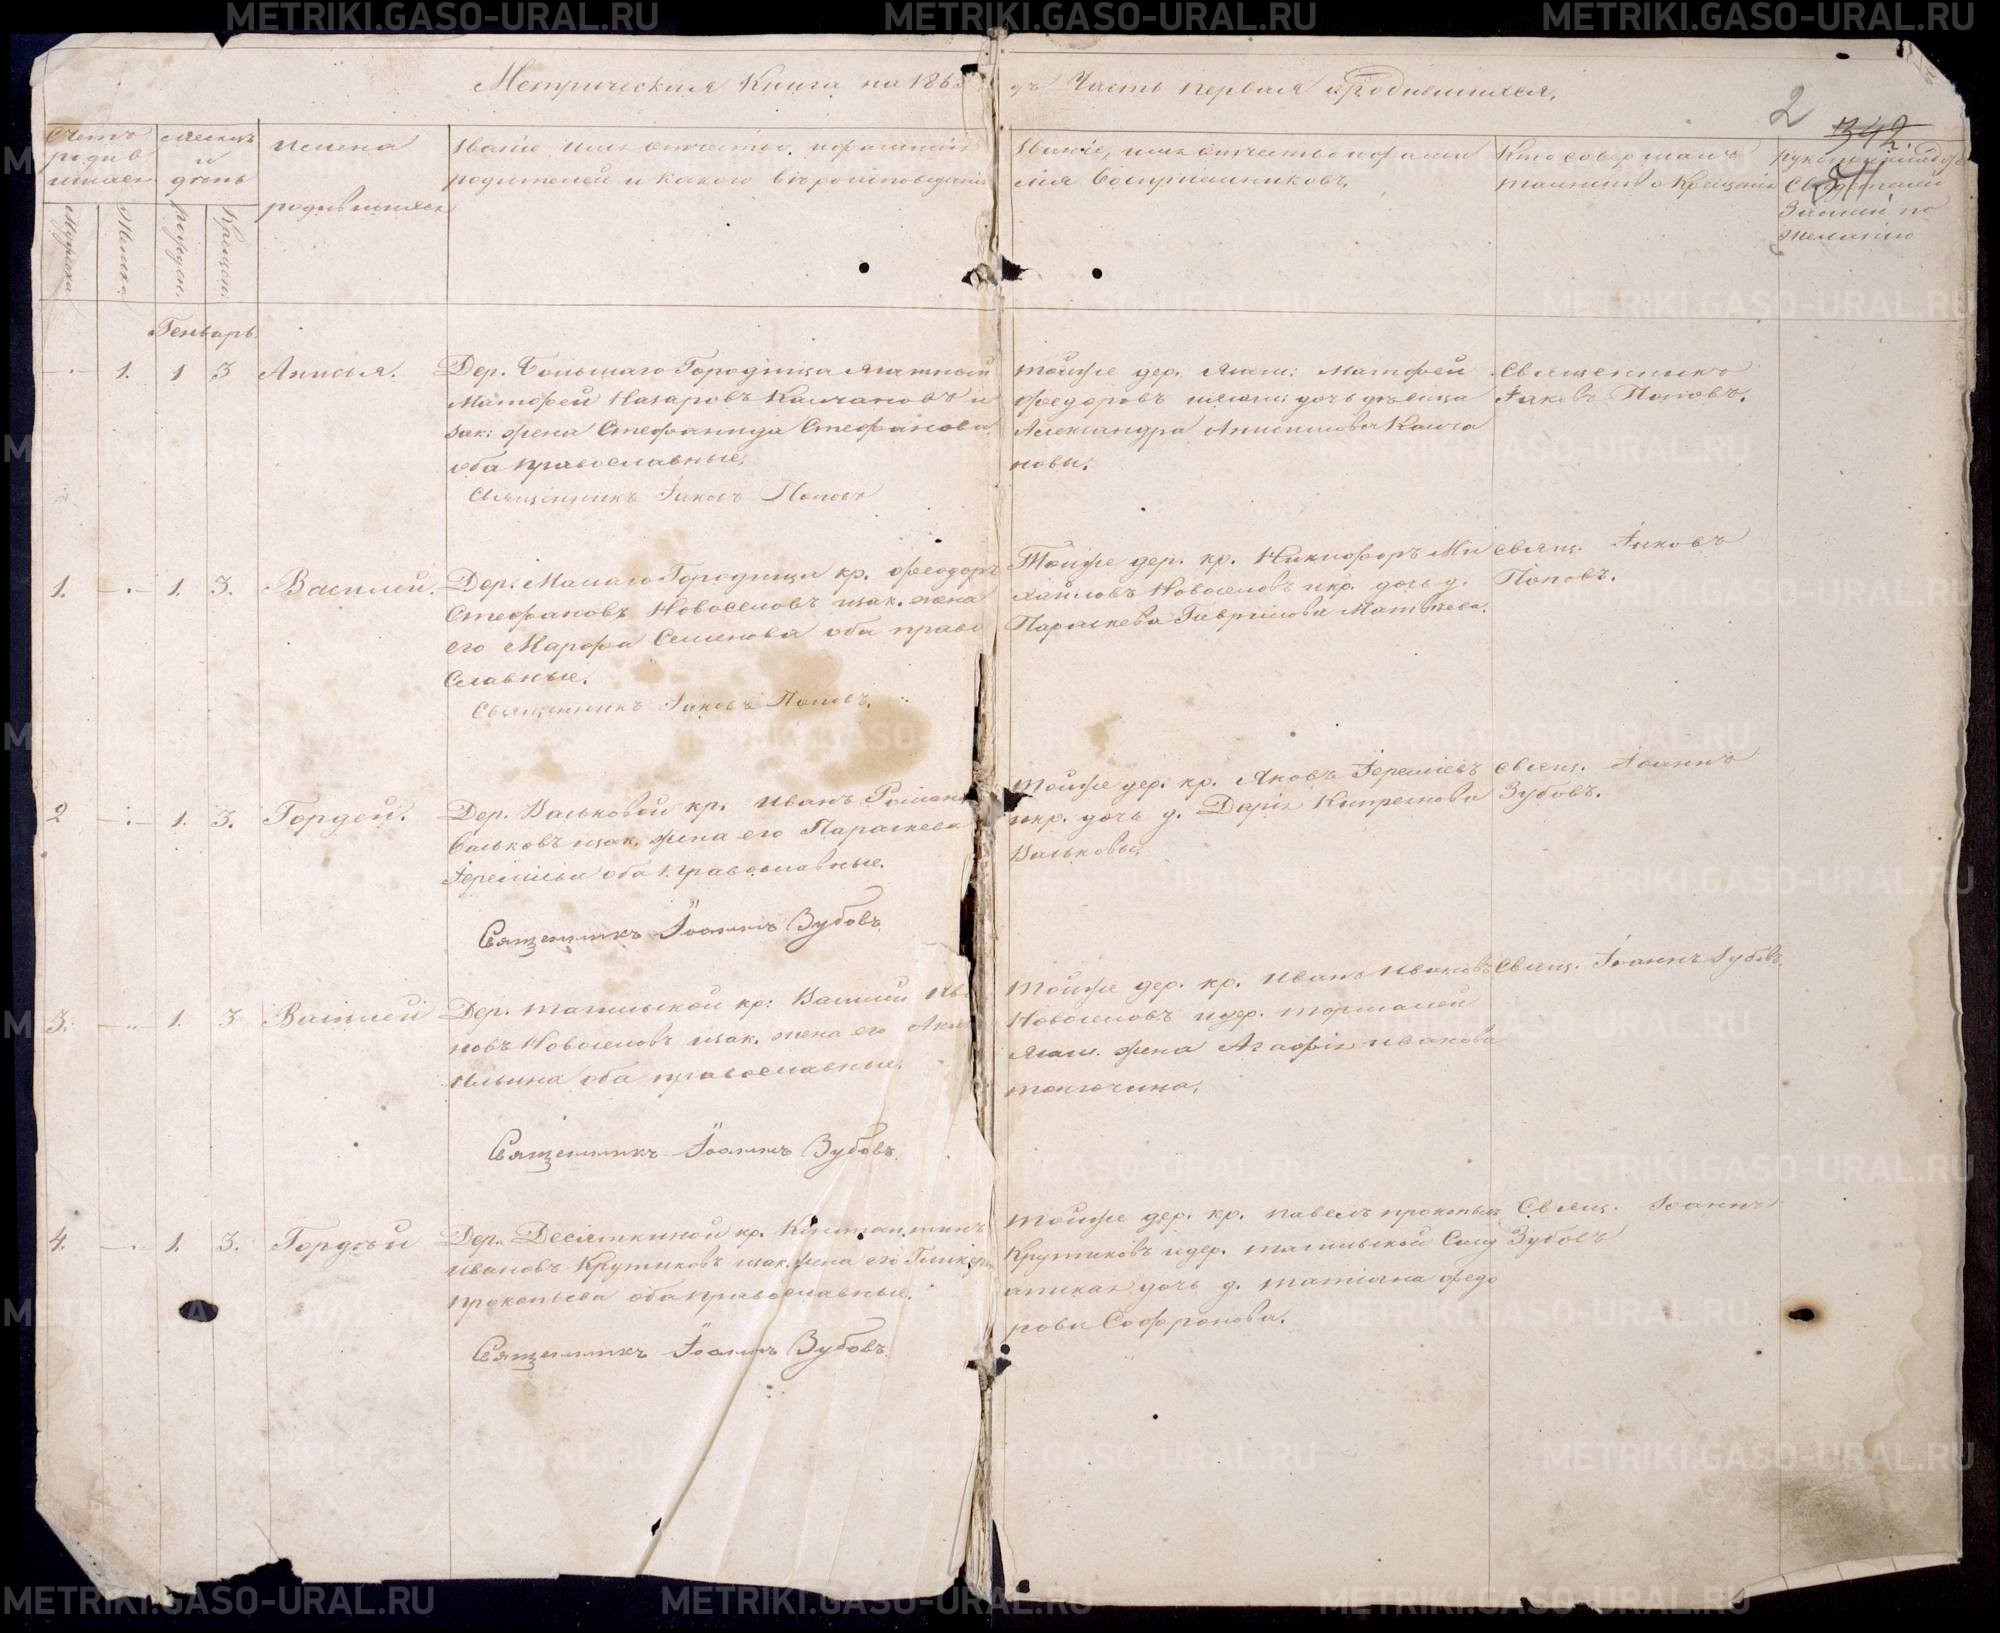 METRIKI.GASO-URAL.RU
Метрическая Книга на 186
дъ Часть первая о родившихся.
2
342
Счетъ родив шихся
Мужеска
Женска
Месяцъ и день
рожден.
Крещен.
Имена родившихся
Званіе имя отчество и фамилія
родителей и какого вѣроисповеданія
Званіе, имя отчество и фами
лія Воспріемниковъ.
Кто совершалъ
таинство Крещенія
Свидетелей
Записи по
желанію
Генварь.
1. 1 3 Анисья.
Дер. Большаго Городища
Матфей Назаровъ Колчановъ и
зак: жена Стефанида Стефанова
оба православные.
Священникъ Іаковъ Поповъ
тойже дер. ямщ: Матфей
Федоровъ и ямщ: дочь дѣвица
Александра Анисимова Колча
нова.
Священникъ
Іаковъ Поповъ.
1. 1. 3. Василей.
Дер. Малаго Городища кр. Феодоръ
Стефановъ Новоселовъ изак. жена
его Марфа Семенова оба право
славные.
Священникъ Іаковъ Поповъ.
Тойже дер. кр. Никифоръ Ми
хайловъ Новоселовъ икр. дочь д.
Параскева Гаврилова Матвеева.
свящ. Іаковъ
Поповъ.
2 1. 3. Гордей.
Дер. Вальковой кр. Иванъ Роман
Вальковъ изак. жена его Параскева
Іереміева оба православные.
Священникъ Іоаннъ Зубовъ
тойже дер. кр. Яковъ Іереміевъ
икр. дочь д. Дарія Кипреянова
Валькова.
свящ. Іоаннъ
Зубовъ.
3. 1. 3 Василей
Дер. кр: Василий Ив
новъ Новоселовъ изак. жена его
Ильина оба православные.
Священникъ Іоаннъ Зубовъ.
тойже дер. кр. Иванъ Ивановъ
Новоселовъ идер.
ямщ. жена Агафія Иванова
Свящ. Іоаннъ Зубовъ.
4. 1. 3. Гордѣй
Дер. Десяткиной кр. Константинъ
Ивановъ Крутиковъ изак. жена его Гликер
Прокопьева оба православные.
Священникъ Іоаннъ Зубовъ
тойже дер. кр. Павелъ Прокопьев
Крутиковъ идер.
дочь д. Татіана Федо
рова Софронова.
Свящ. Іоаннъ
Зубовъ